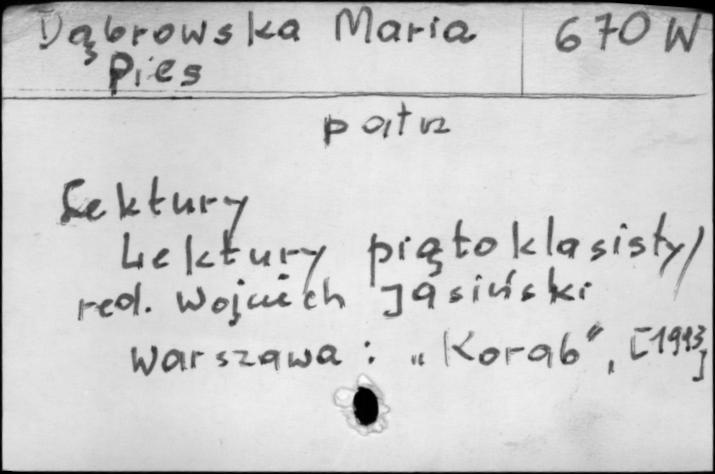 Dąbrowska Maria 670 W
Pies
patrz
Lektury
Lektury piątoklasisty /
red. Wojciech Jasiński
Warszawa : „Korab”, [1993]